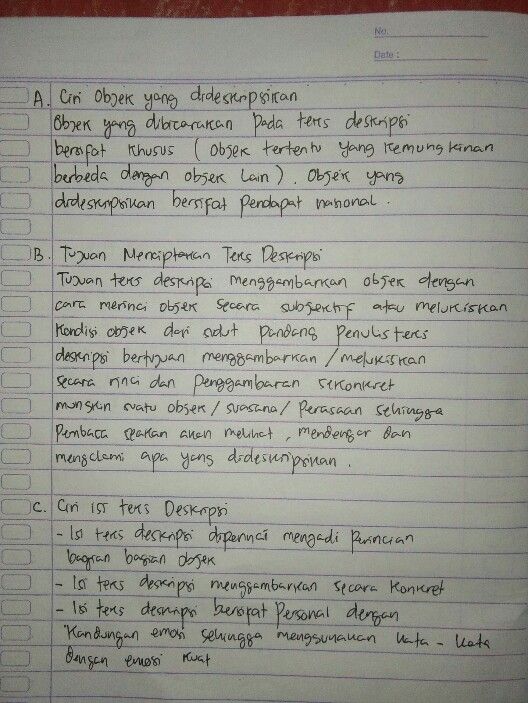 No.
Date :
A. Ciri Objek yang dideskripsikan
Objek yang dibicarakan pada teks deskripsi
bersifat khusus ( objek tertentu yang kemungkinan
berbeda dengan objek lain ). Objek yang
dideskripsikan bersifat pendapat nasional.
B. Tujuan Menciptakan Teks Deskripsi
Tujuan teks deskripsi menggambarkan objek dengan
cara merinci objek secara subjektif atau melukiskan
kondisi objek dari sudut pandang penulis teks
deskripsi bertujuan menggambarkan / melukiskan
secara rinci dan penggambaran sekonkret
mungkin suatu objek / suasana / perasaan sehingga
pembaca seakan akan melihat, mendengar dan
mengalami apa yang dideskripsikan.
C. Ciri isi teks Deskripsi
- Isi teks deskripsi diperinci mengadi perincian
bagian bagian objek
- Isi teks deskripsi menggambarkan secara konkret
- Isi teks deskripsi bersifat personal dengan
kandungan emosi sehingga menggunakan kata - kata
dengan emosi kuat